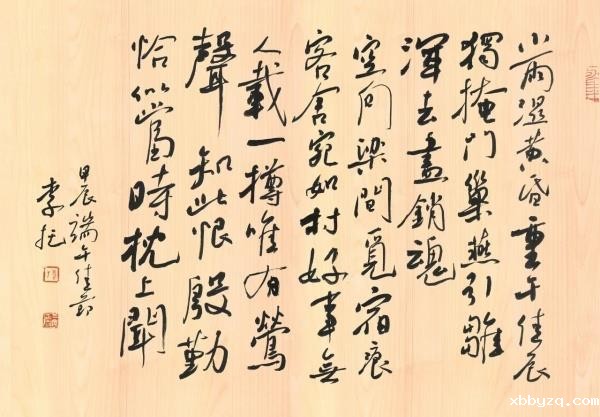 小雨濕黄昏重午佳辰
獨掩門巢燕引雛
渾去盡銷魂
空向梁間覓宿痕
客舍宛如村好事無
人載一樽唯有鶯
聲知此恨殷勤
恰似當時枕上聞
甲辰端午佳節
李
xbbyzq.com